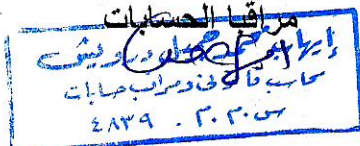 مراقبا الحسابات
إيهاب محمد جميل درويش
محاسب قانونى ومراقب حسابات
س.م.م. ٤٨٣٩